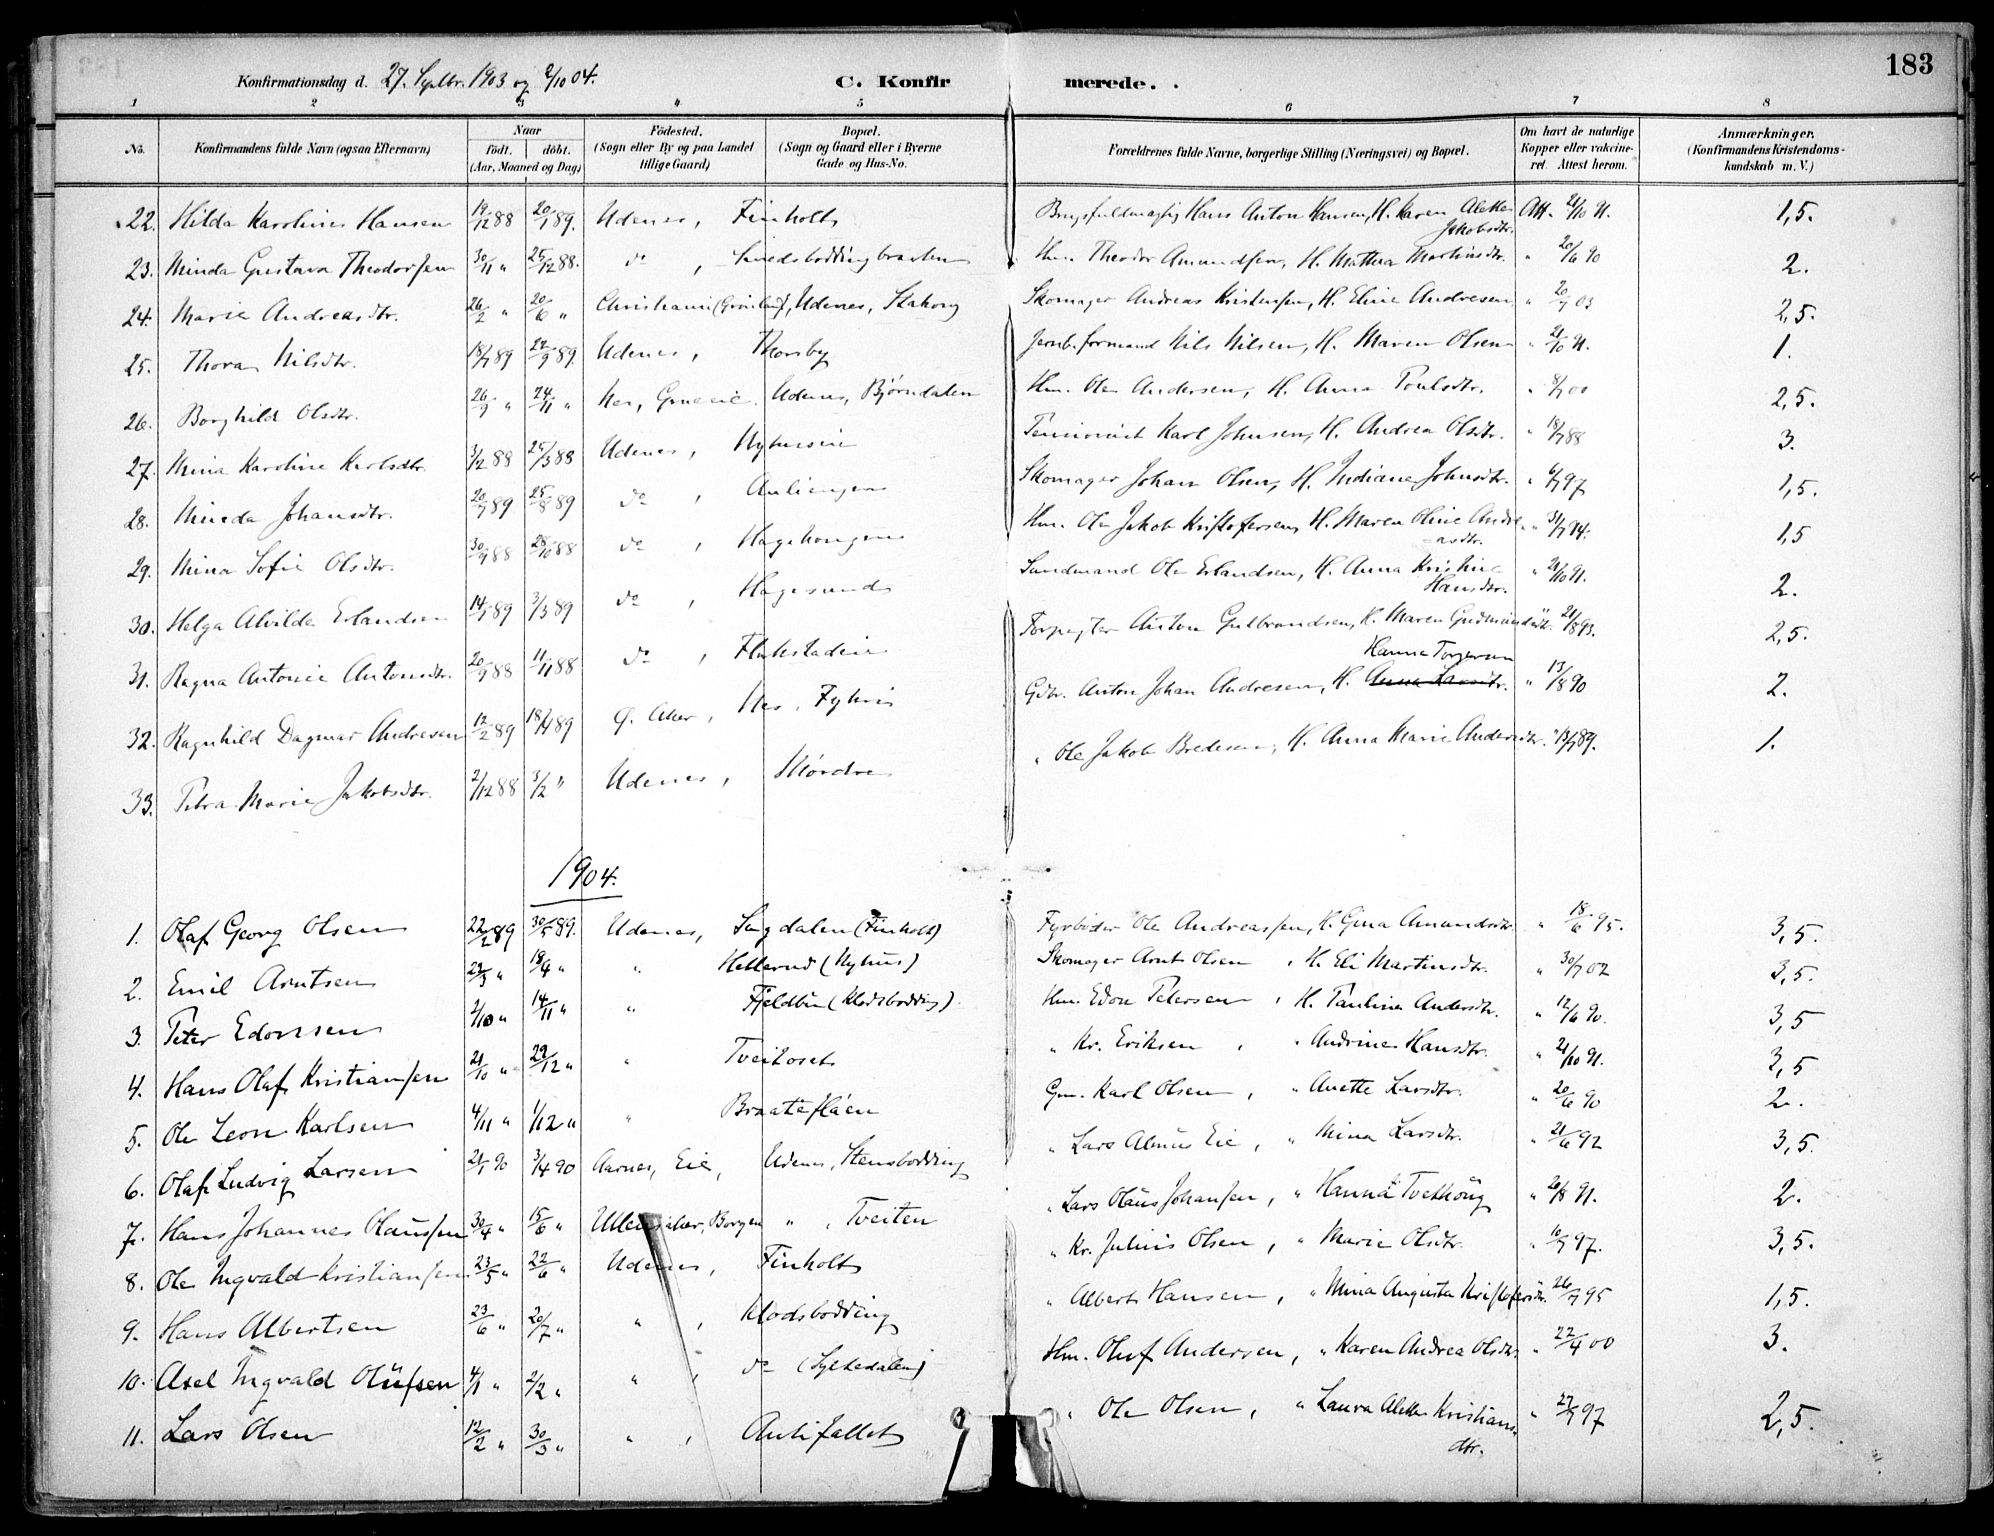 183
Konfirmationsdag d. 27. Septbr. 1903 og 2/10 04.
C. Konfirmerede.
1 2 3 4 5 6 7 8
No. Konfirmandens fulde Navn (ogsaa Efternavn) Naar født. døbt. (Aar, Maaned og Dag) Fødested. (Sogn eller By og paa Landet tillige Gaard) Bopæl. (Sogn og Gaard eller i Byerne Gade og Hus-No. Forældrenes fulde Navne, borgerlige Stilling (Næringsvei) og Bopæl. Om havt de naturlige Kopper eller vakcineret. Attest herom. Anmærkninger. (Konfirmandens Kristendomskundskab m. V.)
22. Hilda Karoline Hansen 19/12 88 20/1 89. Udenes, Finholt Hans Anton Hansen, H. Karen Alette Jakobsdtr. Att. 21/10 91. 1,5.
23. Minda Gustava Theodorsen 30/11 " 25/12 88. do , Hm. Theodor Amundsen, H. Mathea Martinsdtr. " 20/6 90 2.
24. Marie Andreasdtr. 26/2 " 20/6 " Udenes, Skomager Andreas Kristensen, H. Eline Andresen " 20/7 03 2,5.
25. Thora Nilsdtr. 18/7 89 22/9 89 Udenes, Thorsby Jernb.formand Nils Nilsen, H. Maren Olsen " 21/10 91. 1.
26. Borghild Olsdtr. 26/9 " 24/11 " Nes, Udenes, Bjørndalen Hm. Ole Andersen, H. Anna Poulsdtr. " 8/7 00 2,5.
27. Mina Karoline Karlsdtr. 3/2 88 25/3 88 Udenes, Karl Johnsen, H. Andrea Olsdtr. " 18/7 88 3.
28. Minda Johansdtr. 20/7 89 25/8 89 do , Skomager Johan Olsen, H. Indiane Johnsdtr. " 6/7 97 1,5.
29. Mina Sofie Olsdtr. 30/9 88 28/10 88 do , Hagehaugen Hm. Ole Jakob Kristofersen, H. Maren Oline Andreasdtr. " 31/7 94. 1,5
30. Helga Alvilda Erlandsen 14/1 89 3/3 89 do , Hagesund Ole Erlandsen, H. Anna Kristine Hansdtr. " 21/10 91. 2.
31. Ragna Antonie Antonsdtr. 20/9 88 11/11 88 do , Flakstadeie Forpagter Anton Gulbrandsen, H. Maren Gudmundsdtr. 21/8 93. 2,5.
32. Ragnhild Dagmar Andresen 12/2 89 18/4 89 Ø. Aker, Nes, Gdbr. Anton Johan Andresen, H. Hanna Torgersen " 13/8 90 2.
33. Petra Marie Jakobsdtr. 2/12 88 3/2 " Udenes, Mørdre " Ole Jakob Bredesen, H. Anna Marie Andersdtr. " 13/7 89. 1.
1904.
1. Olaf Georg Olsen 22/2 89 30/5 89. Udenes, Sagdalen (Finholt) Fyrbøder Ole Andreassen, H. Gina Amundsdtr. " 18/6 95. 3,5.
2. Emil Arntsen 22/3 " 18/4 " " Hellerud (Nyhus) Skomager Arnt Olsen , H. Eli Martinsdtr. " 30/7 02 3,5.
3. Peter Edonsen 2/10 " 14/11 " " Fjeldbu (Klodsbødding) Hm. Edon Petersen , H. Pauline Andersdtr. " 12/6 90. 3,5
4. Hans Olaf Kristiansen 21/10 " 29/12 " " Tveitoset " Kr. Eriksen , " Andrine Hansdtr. " 21/10 91. 3,5
5. Ole Leon Karlsen 4/11 " 1/12 " " Braatefláen Gm. Karl Olsen , " Anette Larsdtr. " 20/6 90 2.
6. Olaf Ludvig Larsen 21/1 90 3/4 90 Aarnes, Eie, Udenes, Stensbødding " Lars Almus Eie , " Mina Larsdtr. " 21/6 92 3,5.
7. Hans Johannes Olaussen 30/4 " 15/6 " Ullensaker, Borgen " , Tveiten " Lars Olaus Johansen , " Hanna Tvethaug " 26/8 91. 2.
8. Ole Ingvald Kristiansen 23/5 " 22/6 " Udenes, Finholt " Kr. Julius Olsen , " Marie Olsdtr. " 10/7 97. 3,5.
9. Hans Albertsen 23/6 " 20/7 " " , Klodsbødding " Albert Hansen , " Mina Augusta Kristofersdtr. " 26/7 95 1,5.
10. Axel Ingvald Olüfsen 4/1 " 2/2 " " , do (Sykedalen) Hm. Oluf Andersen, " Karen Andrea Olsdtr. " 22/4 00 3.
11. Lars Olsen 12/2 " 30/3 " " , Aulifallet " Ole Olsen , " Laura Alette Kristiansdtr. " 27/7 97 2,5.